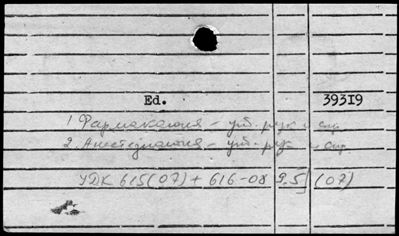 Ed. 39319
1. Фармакология – уч. рук. и сп.
2. Анестезиология – уч. рук. и сп.
УДК 615(07) + 616-08 9.5 (07)